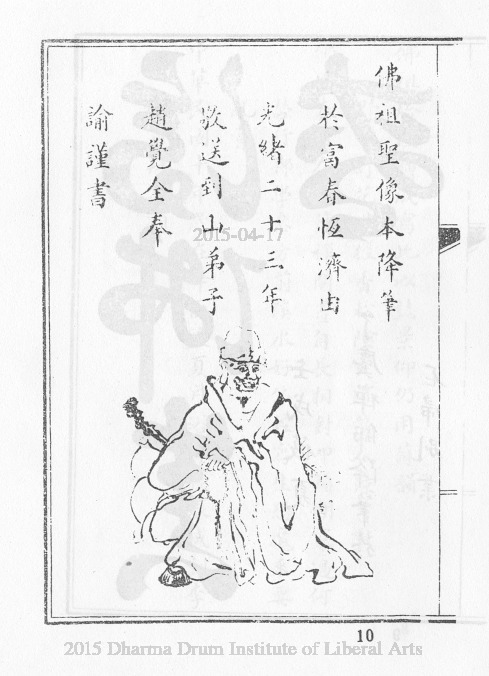 佛祖聖像本降筆
於富春恆濟由
光緒二十三年
敬送到山弟子
趙覺全奉
諭謹書
2015-04-17
10
2015 Dharma Drum Institute of Liberal Arts